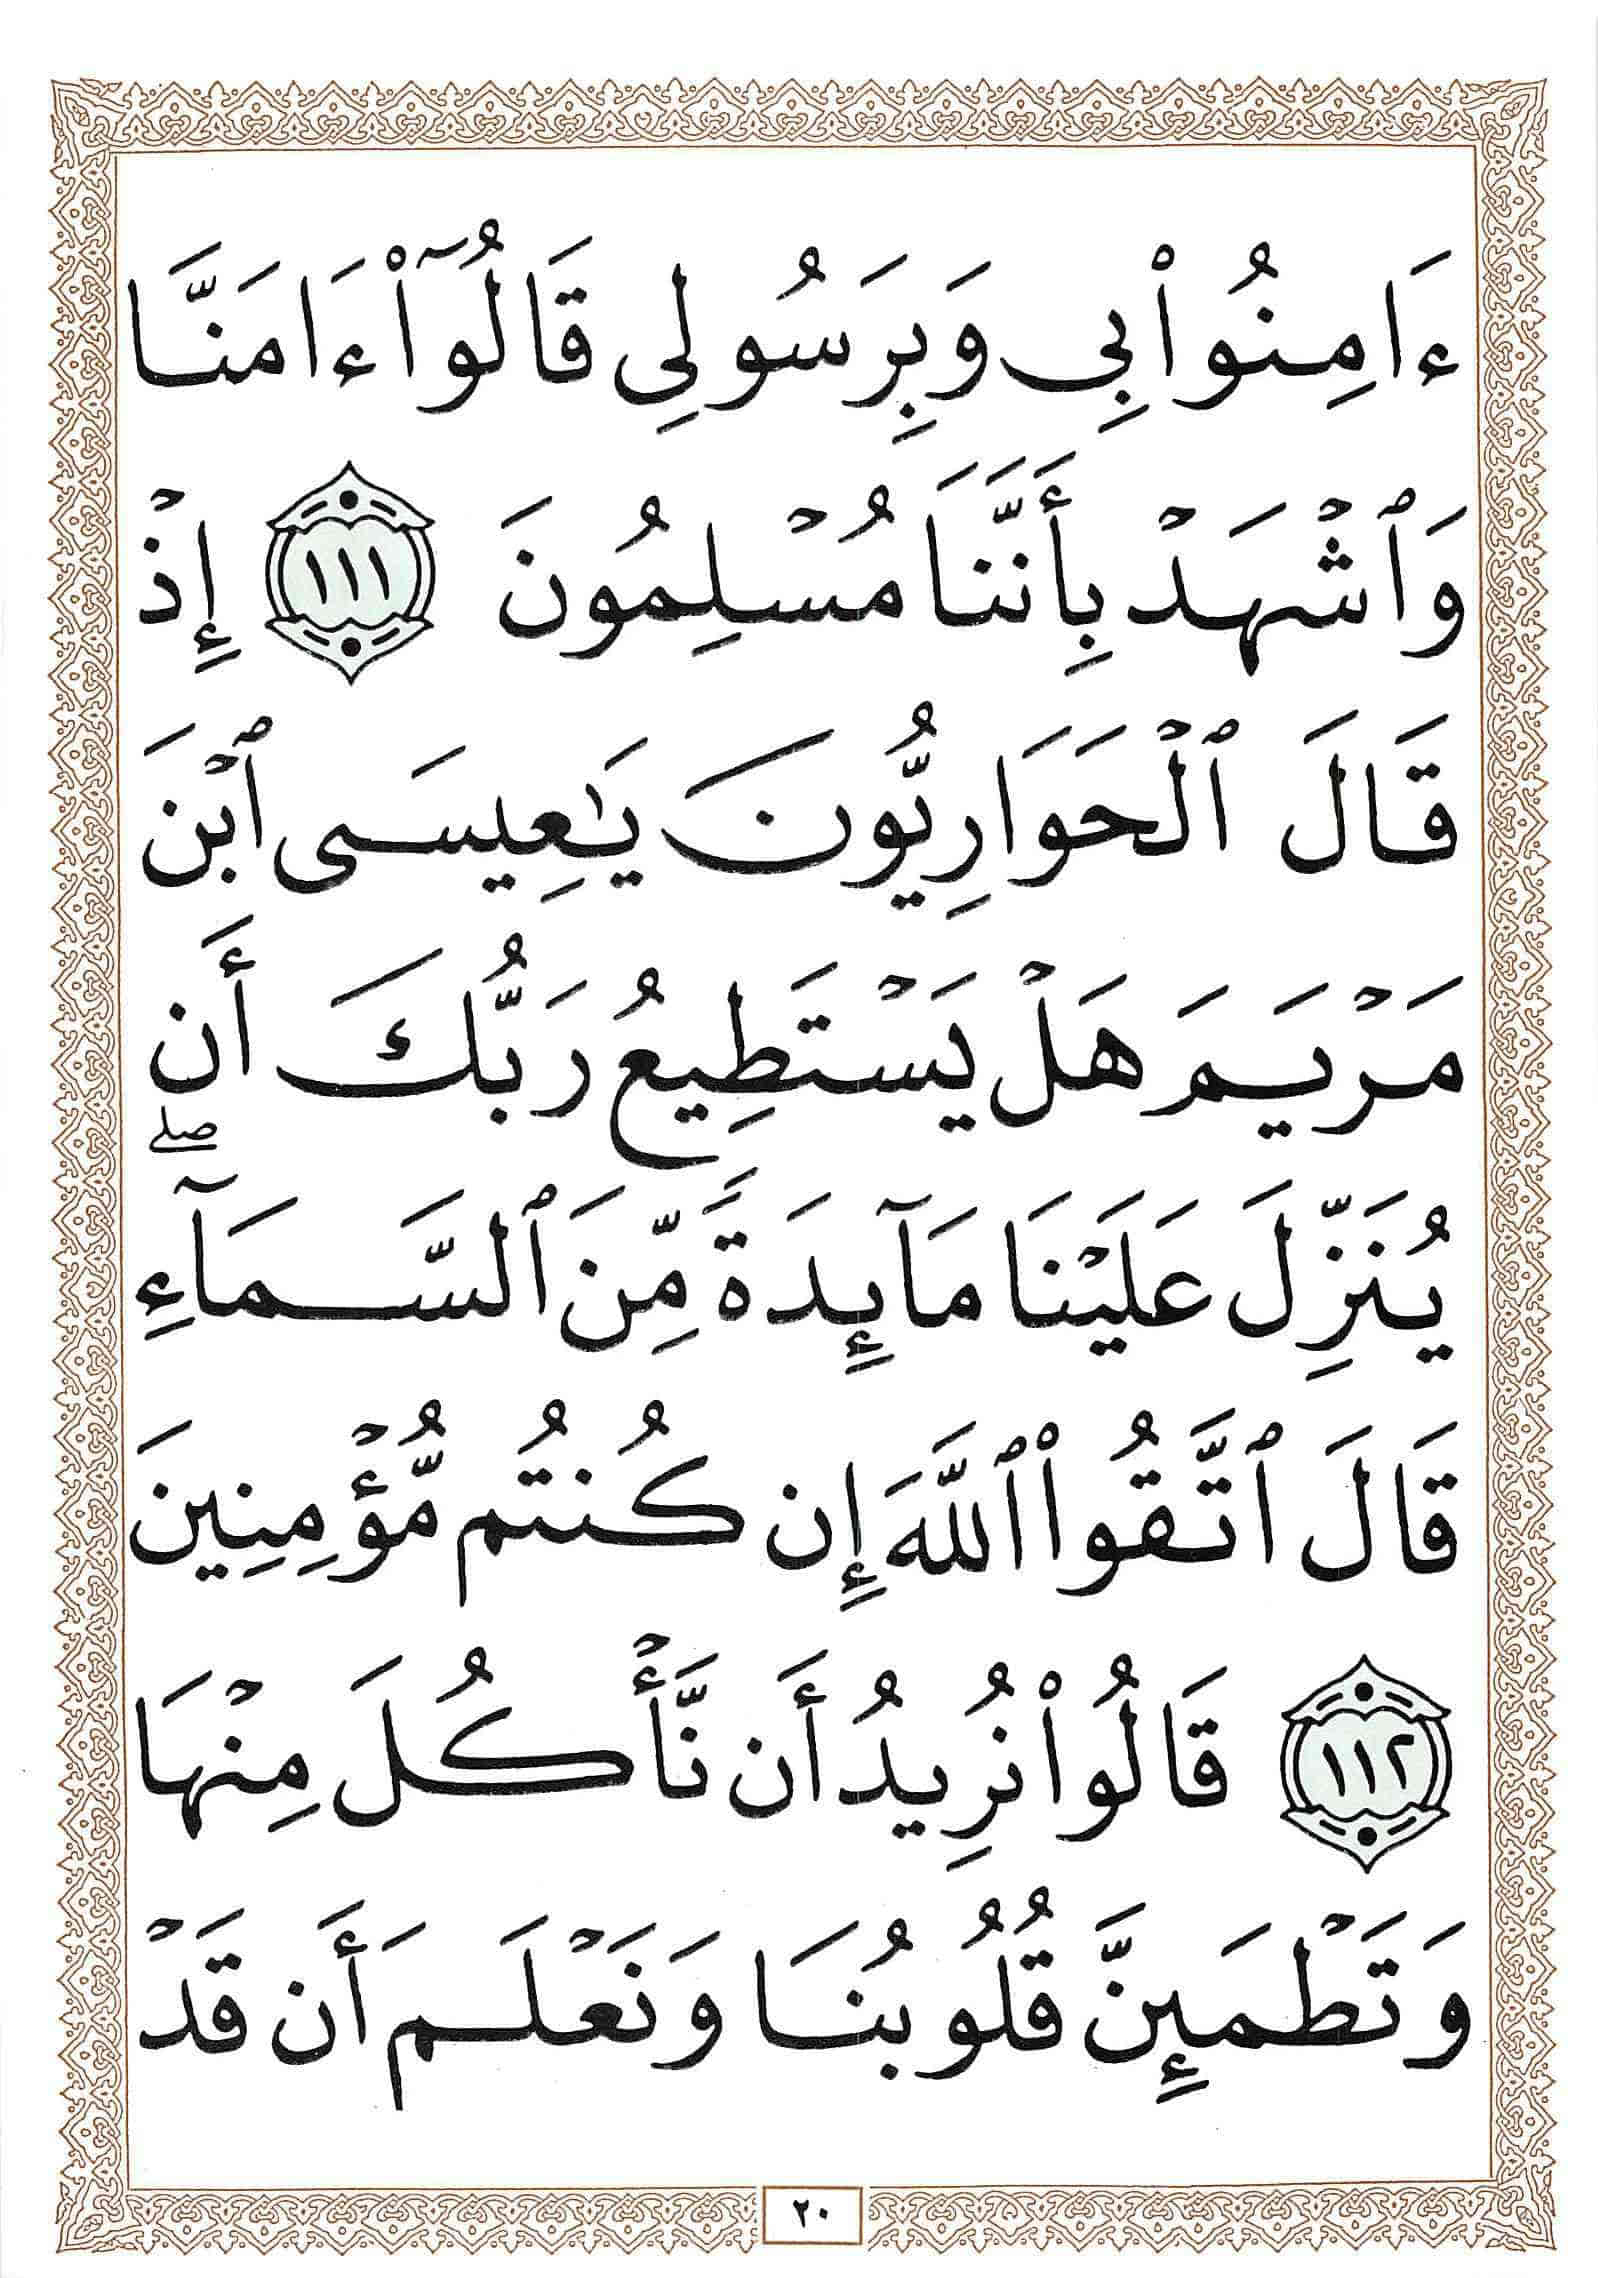 ءَامِنُوا۟ بِى وَبِرَسُولِى قَالُوٓا۟ ءَامَنَّا
وَٱشْهَدْ بِأَنَّنَا مُسْلِمُونَ ١١١ إِذْ
قَالَ ٱلْحَوَارِيُّونَ يَٰعِيسَى ٱبْنَ
مَرْيَمَ هَلْ يَسْتَطِيعُ رَبُّكَ أَن
يُنَزِّلَ عَلَيْنَا مَآئِدَةً مِّنَ ٱلسَّمَآءِ ۖ
قَالَ ٱتَّقُوا۟ ٱللَّهَ إِن كُنتُم مُّؤْمِنِينَ
١١٢ قَالُوا۟ نُرِيدُ أَن نَّأْكُلَ مِنْهَا
وَتَطْمَئِنَّ قُلُوبُنَا وَنَعْلَمَ أَن قَدْ
٢٠